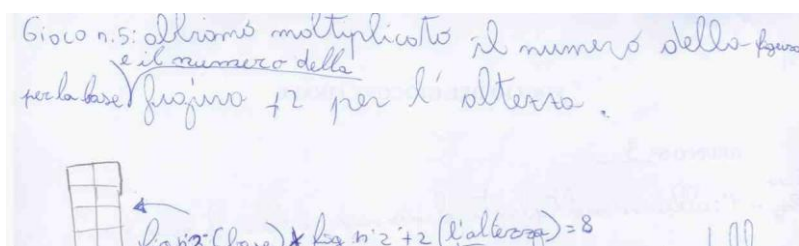 Gioco n.5: abbiamo moltiplicato il numero della figura
per la base e il numero della
figura +2 per l'altezza.
fig n°2 (base) x fig. n°2 +2 (l'altezza) = 8